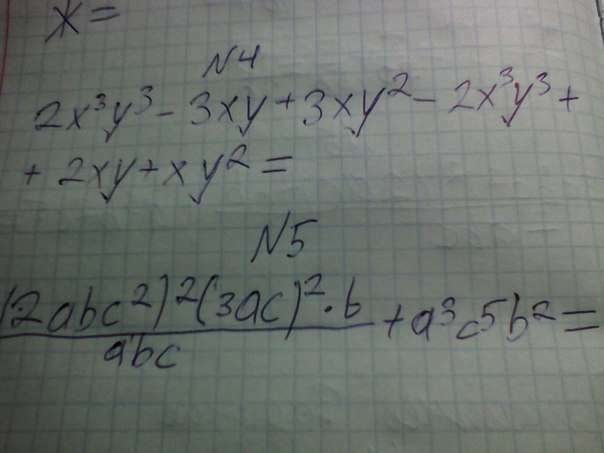 ж =
N4
2x³y³ - 3xy + 3xy² - 2x³y³ +
+ 2xy + xy² =
N5
(2abc²)²(3ac)²·b
abc
+ a³c⁵b² =